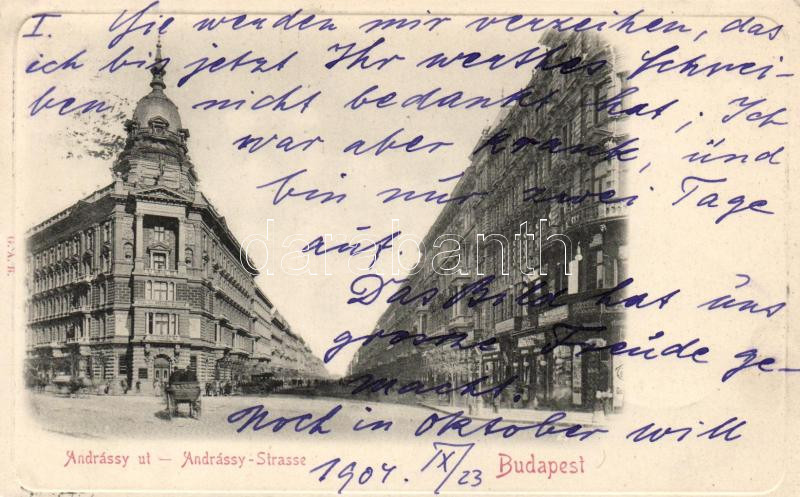 I. Sie werden mir verzeihen, das
ich bis jetzt Ihr werthes Schrei-
ben nicht bedankt hat; Ich
war aber krank, und
bin nur zwei Tage
auf.
Das Bild hat uns
grosse Freude ge-
macht.
Noch in Oktober will
1904. IX/23
Andrássy ut — Andrássy-Strasse
Budapest
G. A. B.
darabanth